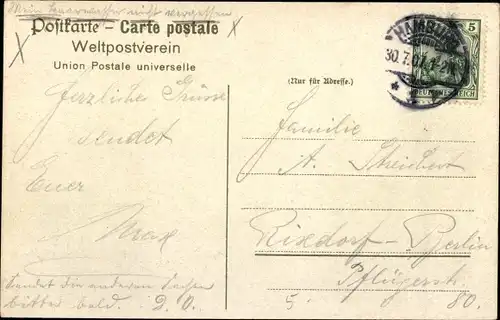 Mein Haarwasser nicht vergessen
Postkarte – Carte postale
Weltpostverein
Union Postale universelle
(Nur für Adresse.)
HAMBURG
30.7.07.1-2N
5
DEUTSCHES REICH
Herzliche Grüsse
sendet
Euer
Max
Sendet die anderen Sachen
bitte bald. D. O.
Familie
A. Streichert
Rixdorf-Berlin
Pflügerstr.
5. 80.